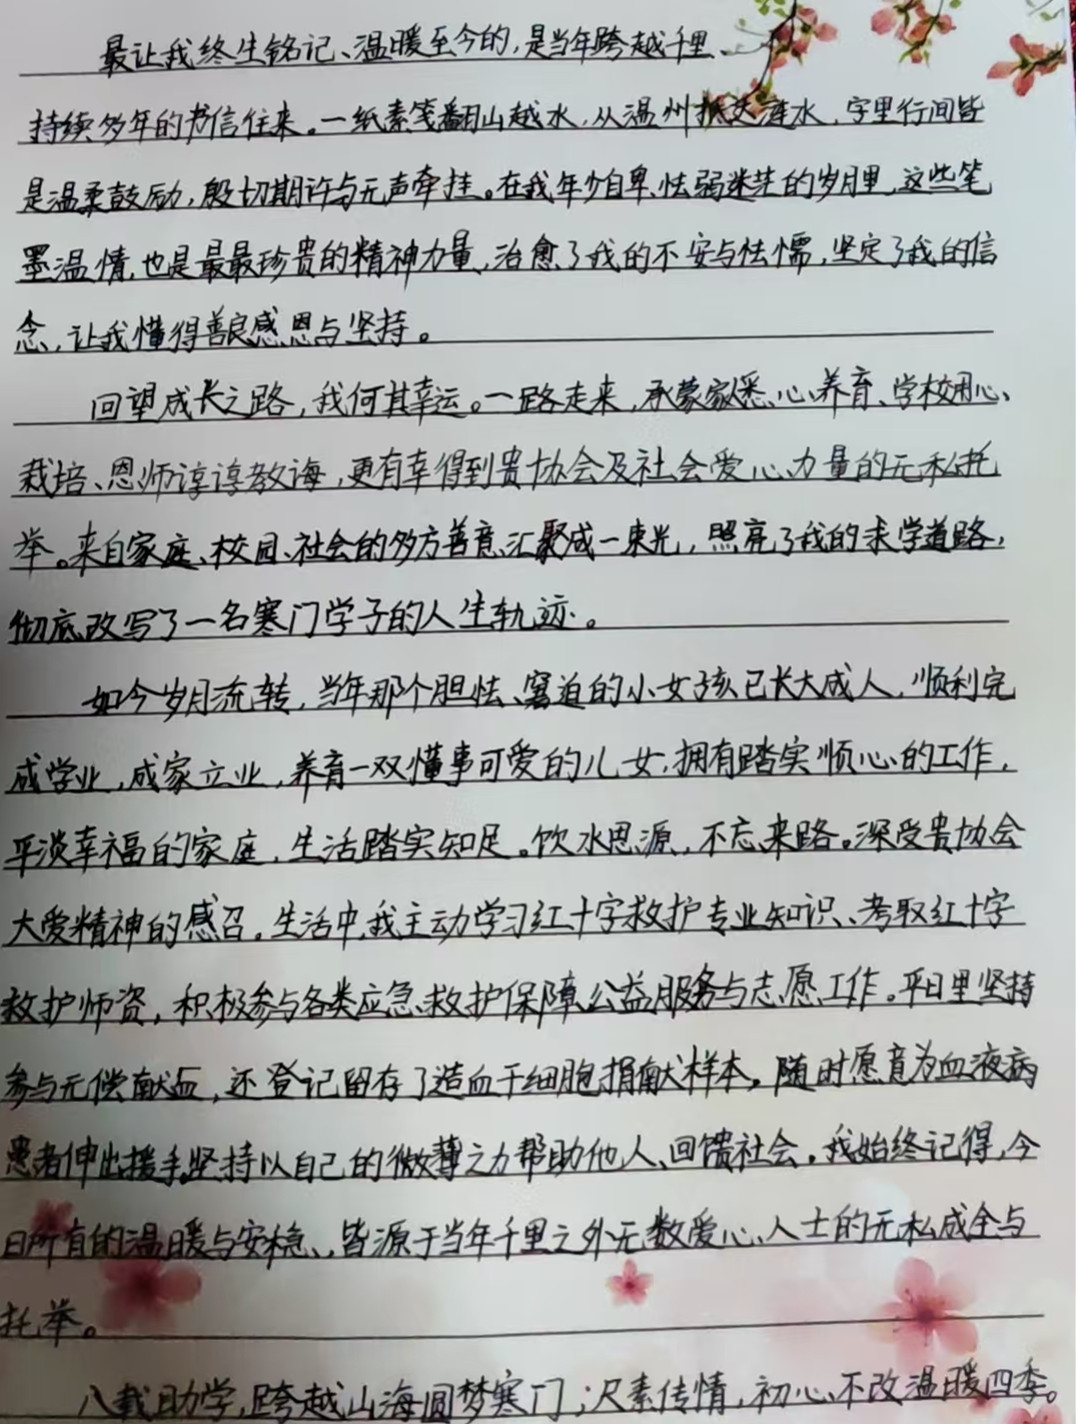 最让我终生铭记、温暖至今的,是当年跨越千里、
持续多年的书信往来。一纸素笺翻山越水,从温州抵达涟水,字里行间皆
是温柔鼓励,殷切期许与无声牵挂。在我年少自卑、怯弱迷茫的岁月里,这些笔
墨温情,也是最最珍贵的精神力量,治愈了我的不安与怯懦,坚定了我的信
念,让我懂得善良感恩与坚持。
回望成长之路,我何其幸运。一路走来,承蒙家悉心养育、学校用心、
栽培、恩师谆谆教诲,更有幸得到贵协会及社会爱心力量的无私托
举。来自家庭、校园、社会的多方善意汇聚成一束光,照亮了我的求学道路,
彻底改写了一名寒门学子的人生轨迹。
如今岁月流转,当年那个胆怯、窘迫的小女孩已长大成人,顺利完
成学业,成家立业,养育一双懂事可爱的儿女,拥有踏实顺心的工作,
平淡幸福的家庭,生活踏实知足。饮水思源,不忘来路。深受贵协会
大爱精神的感召,生活中,我主动学习红十字救护专业知识、考取红十字
救护师资,积极参与各类应急救护保障公益服务与志愿工作。平日里坚持
参与无偿献血,还登记留存了造血干细胞捐献样本,随时愿意为血液病
患者伸出援手,坚持以自己的微薄之力帮助他人、回馈社会。我始终记得,今
日所有的温暖与安稳,皆源于当年千里之外无数爱心人士的无私成全与
托举。
八载助学,跨越山海圆梦寒门;尺素传情,初心不改温暖四季。